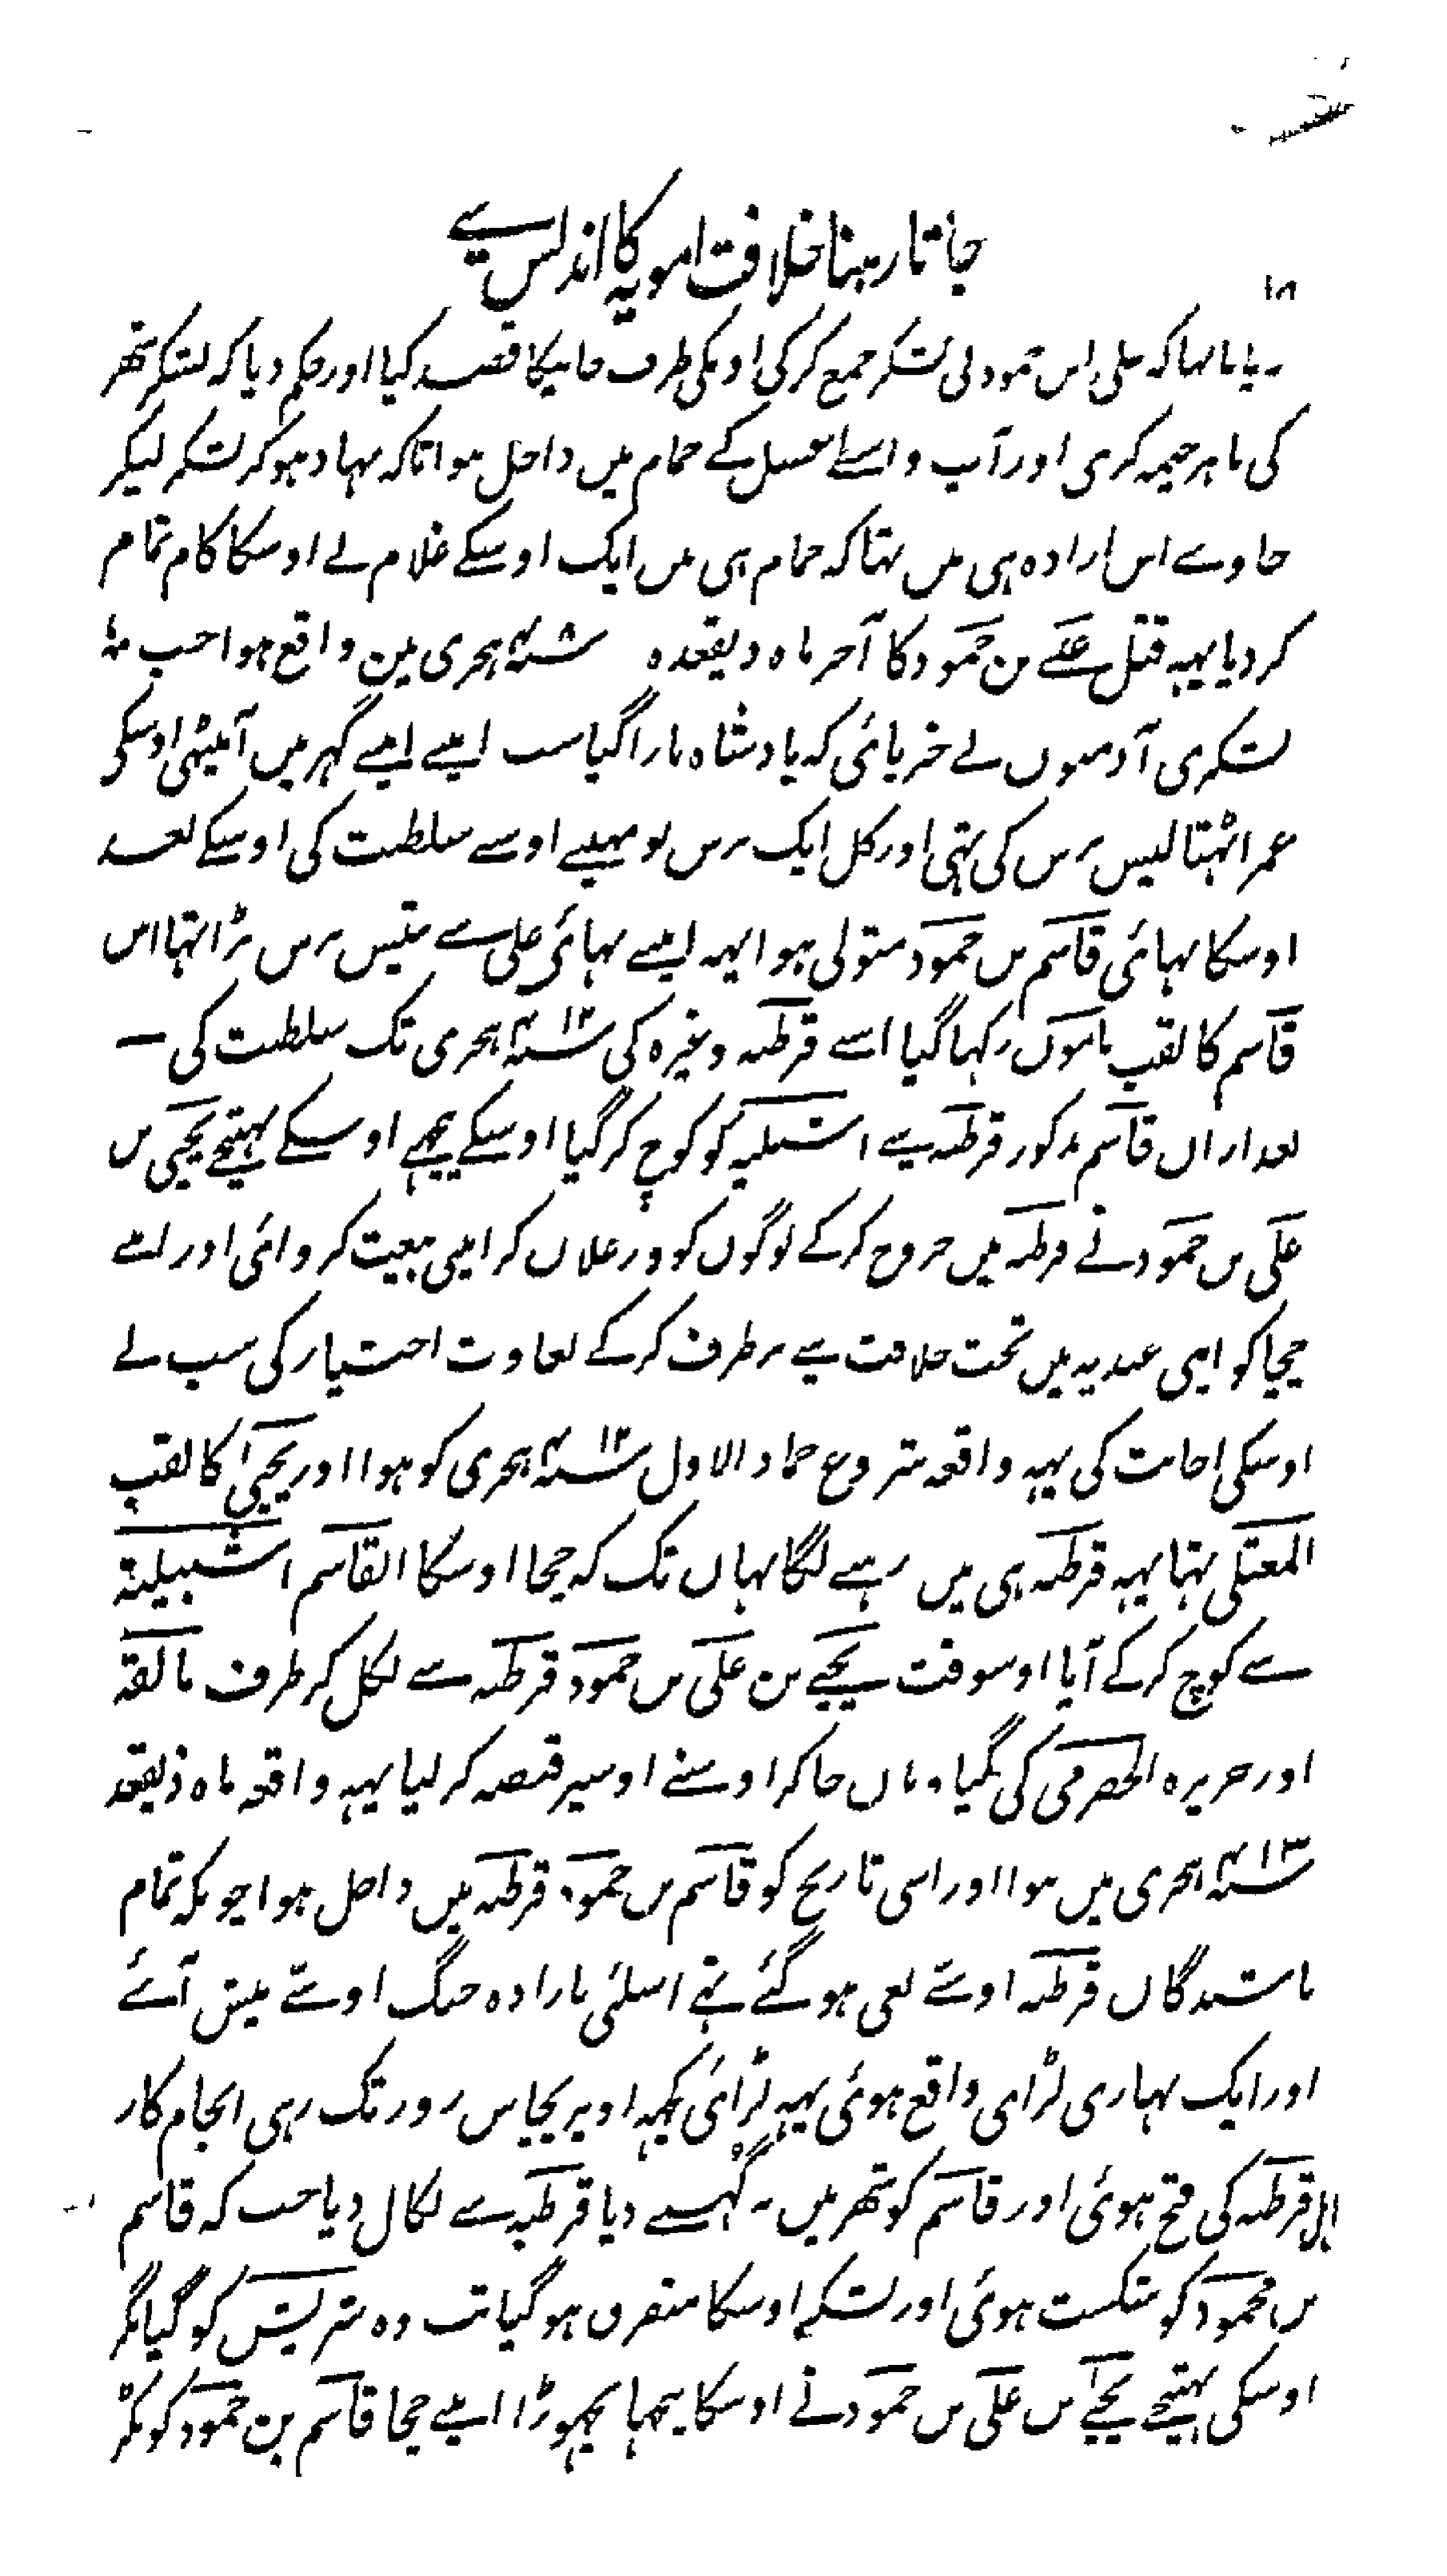 جاتا رہنا خلافت امویہ کا اندلس سے
۱۸
کہ علی ابن حمود نی لشکر جمع کرکی اوسکی طرف جانیکا قصد کیا اور حکم دیا کہ لشکر شہر
کی باہر خیمہ کری اور آپ واسطے غسل کے حمام میں داخل ہوا تاکہ نہا دہو کر لشکر لیکر
جاوے اس ارادہ ہی میں تہا کہ حمام ہی میں ایک اوسکے غلام نے اوسکا کام تمام
کر دیا یہہ قتل علے بن حمود کا آخر ماہ ذیقعدہ سنہ ۴۰۸ ہجری مین واقع ہوا جب
لشکری آدمیوں نے خبر پائی کہ بادشاہ مارا گیا سب اپنے اپنے گہر میں آبیٹہی اوسکی
عمر اٹہتالیس برس کی تہی اور کل ایک برس نو مہینے اوسنے سلطنت کی اوسکے بعد
اوسکا بہائی قاسم بن حمود متولی ہوا یہہ اپنے بہائی علی سے بیس برس بڑا تہا اس
قاسم کا لقب مامون رکہا گیا اسنے قرطبہ وغیرہ کی سنہ ۴۱۲ ہجری تک سلطنت کی —
بعد ازاں قاسم مذکور قرطبہ سے اشبیلیہ کو کوچ کر گیا اوسکے پیچہے اوسکے بہتیجے یحیی بن
علی بن حمود نے قرطبہ میں خروج کرکے لوگوں کو ورغلان کر اپنی بیعت کروائی اور اپنے
چچا کو اپنی عندیہ میں تخت خلافت سے برطرف کرکے بغاوت اختیار کی سب نے
اوسکی اجابت کی یہہ واقعہ شروع جماد الاول سنہ ۴۱۲ ہجری کو ہوا اور یحیی کا لقب
المعتلی تہا یہہ قرطبہ ہی میں رہنے لگا یہاں تک کہ چچا اوسکا القاسم اشبیلیة
سے کوچ کرکے آیا اوسوقت یحیے بن علی بن حمود قرطبہ سے نکل کر طرف مالقہ
اور جزیرہ الخضرمی کی گیا وہاں جا کر اوسنے اوسپر قبضہ کر لیا یہہ واقعہ ماہ ذیقعد
سنہ ۴۱۳ ہجری میں ہوا اور اسی تاریخ کو قاسم بن حمود قرطبہ میں داخل ہوا چونکہ تمام
باشندگاں قرطبہ اوسے بغی ہو گئے تہے اسلئی بارادہ جنگ اوسے پیش آئے
اور ایک بہاری لڑائی واقع ہوئی یہہ لڑائی کچہہ اوپر پچاس روز تک رہی انجام کار
اہل قرطبہ کی فتح ہوئی اور قاسم کو شہر میں نہ گہسنے دیا قرطبہ سے نکال دیا جب کہ قاسم
بن محمود کو شکست ہوئی اور لشکر اوسکا متفرق ہو گیا تب وہ شریش کو گیا مگر
اوسکی بہتیجے یحیے بن علی بن حمود نے اوسکا پیچہا نچہوڑا اپنے چچا قاسم بن حمود کو پکڑ